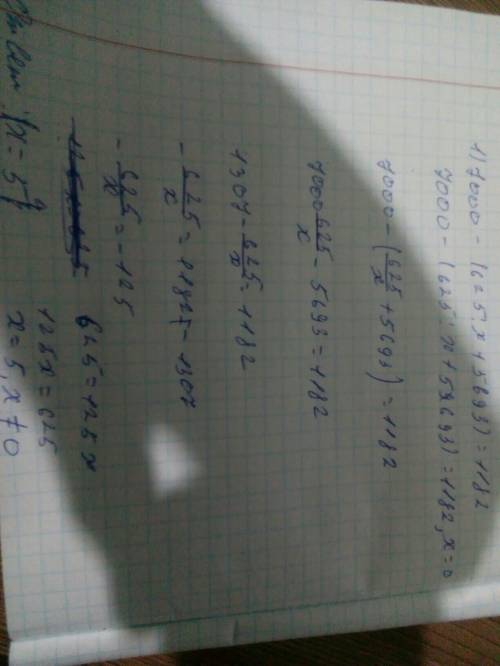 1) 7000 - (625:x+5693)=1182
7000 - (625:x+5693)=1182, x=0
7000 - (625/x + 5693) = 1182
7000 625/x - 5693 = 1182
1307 - 625/x = 1182
- 625/x = 1182 - 1307
- 625/x = -125
625 = 125x
125x = 625
x = 5, x ≠ 0
Ответ: {x = 5}